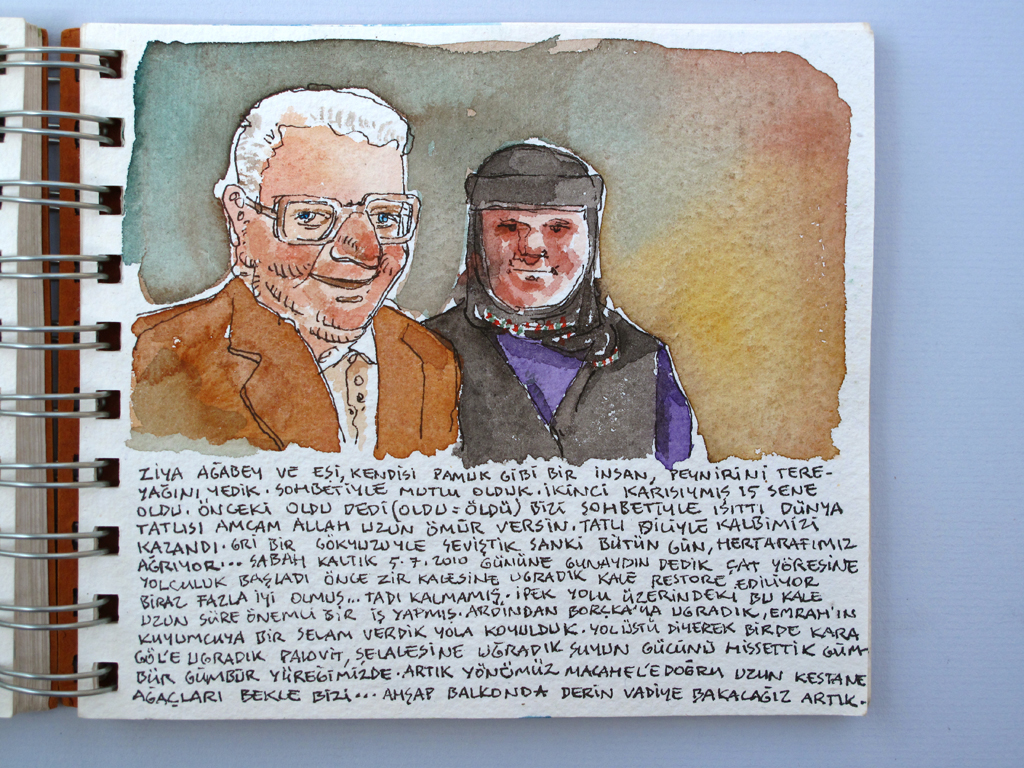 ZİYA AĞABEY VE EŞİ, KENDİSİ PAMUK GİBİ BİR İNSAN, PEYNİRİNİ TERE-
YAĞINI YEDİK. SOHBETİYLE MUTLU OLDUK. İKİNCİ KARISIYMIŞ 15 SENE
OLDU. ÖNCEKİ OLDU DEDİ (OLDU=ÖLDÜ) BİZİ SOHBETİYLE ISITTI DÜNYA
TATLISI AMCAM ALLAH UZUN ÖMÜR VERSİN. TATLI DİLİYLE KALBİMİZİ
KAZANDI. GRİ BİR GÖKYÜZÜYLE SEVİŞTİK SANKİ BÜTÜN GÜN, HERTARAFIMIZ
AĞRIYOR... SABAH KALTIK 5.7.2010 GÜNÜNE GUNAYDIN DEDİK ÇAT YÖRESİNE
YOLCULUK BAŞLADI ÖNCE ZİR KALESİNE UGRADIK KALE RESTORE EDİLİYOR
BİRAZ FAZLA İYİ OLMUŞ... TADI KALMAMIŞ. İPEK YOLU ÜZERİNDEKİ BU KALE
UZUN SÜRE ÖNEMLİ BİR İŞ YAPMIŞ. ARDINDAN BORÇKA'YA UGRADIK, EMRAH'IN
KUYUMCUYA BİR SELAM VERDİK YOLA KOYULDUK. YOLÜSTÜ DİYEREK BİRDE KARA
GÖL'E UGRADIK PALOVİT, ŞELALESİNE UĞRADIK SUYUN GÜCÜNÜ HİSSETTİK GÜM
BÜR GÜMBÜR YÜREĞİMİZDE. ARTIK YÖNÜMÜZ MACAHEL'E DOĞRU UZUN KESTANE
AĞAÇLARI BEKLE BİZİ... AHŞAP BALKONDA DERİN VADİYE BAKACAĞIZ ARTIK.